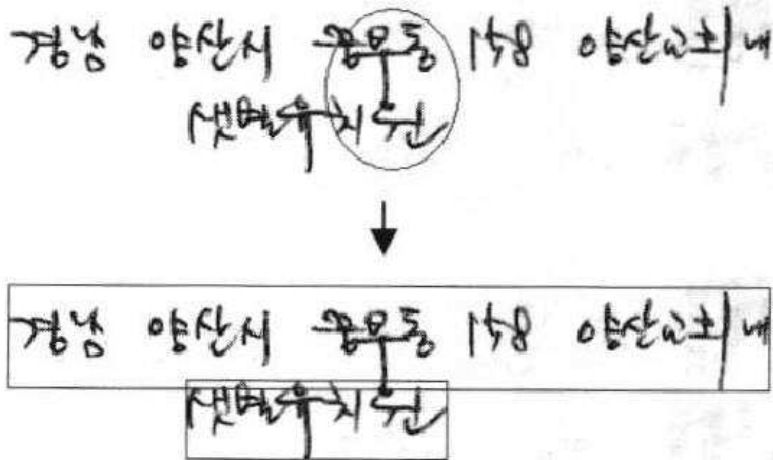 경남 양산시 중부동 158 양산교회 내
샛별유치원
경남 양산시 중부동 158 양산교회 내
샛별유치원